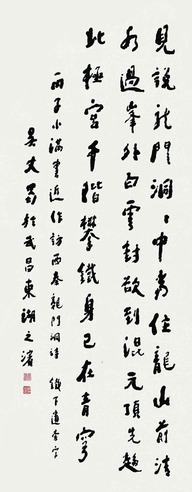 見說龍門洞〻中常住龍山前清
水過峯外白雲封欲到混元頂先趨
北極宮千階攀鐵身已在青穹
丙子小滿書近作訪西秦龍門洞詩 鐵下遺索字
吴丈蜀於武昌東湖之濱